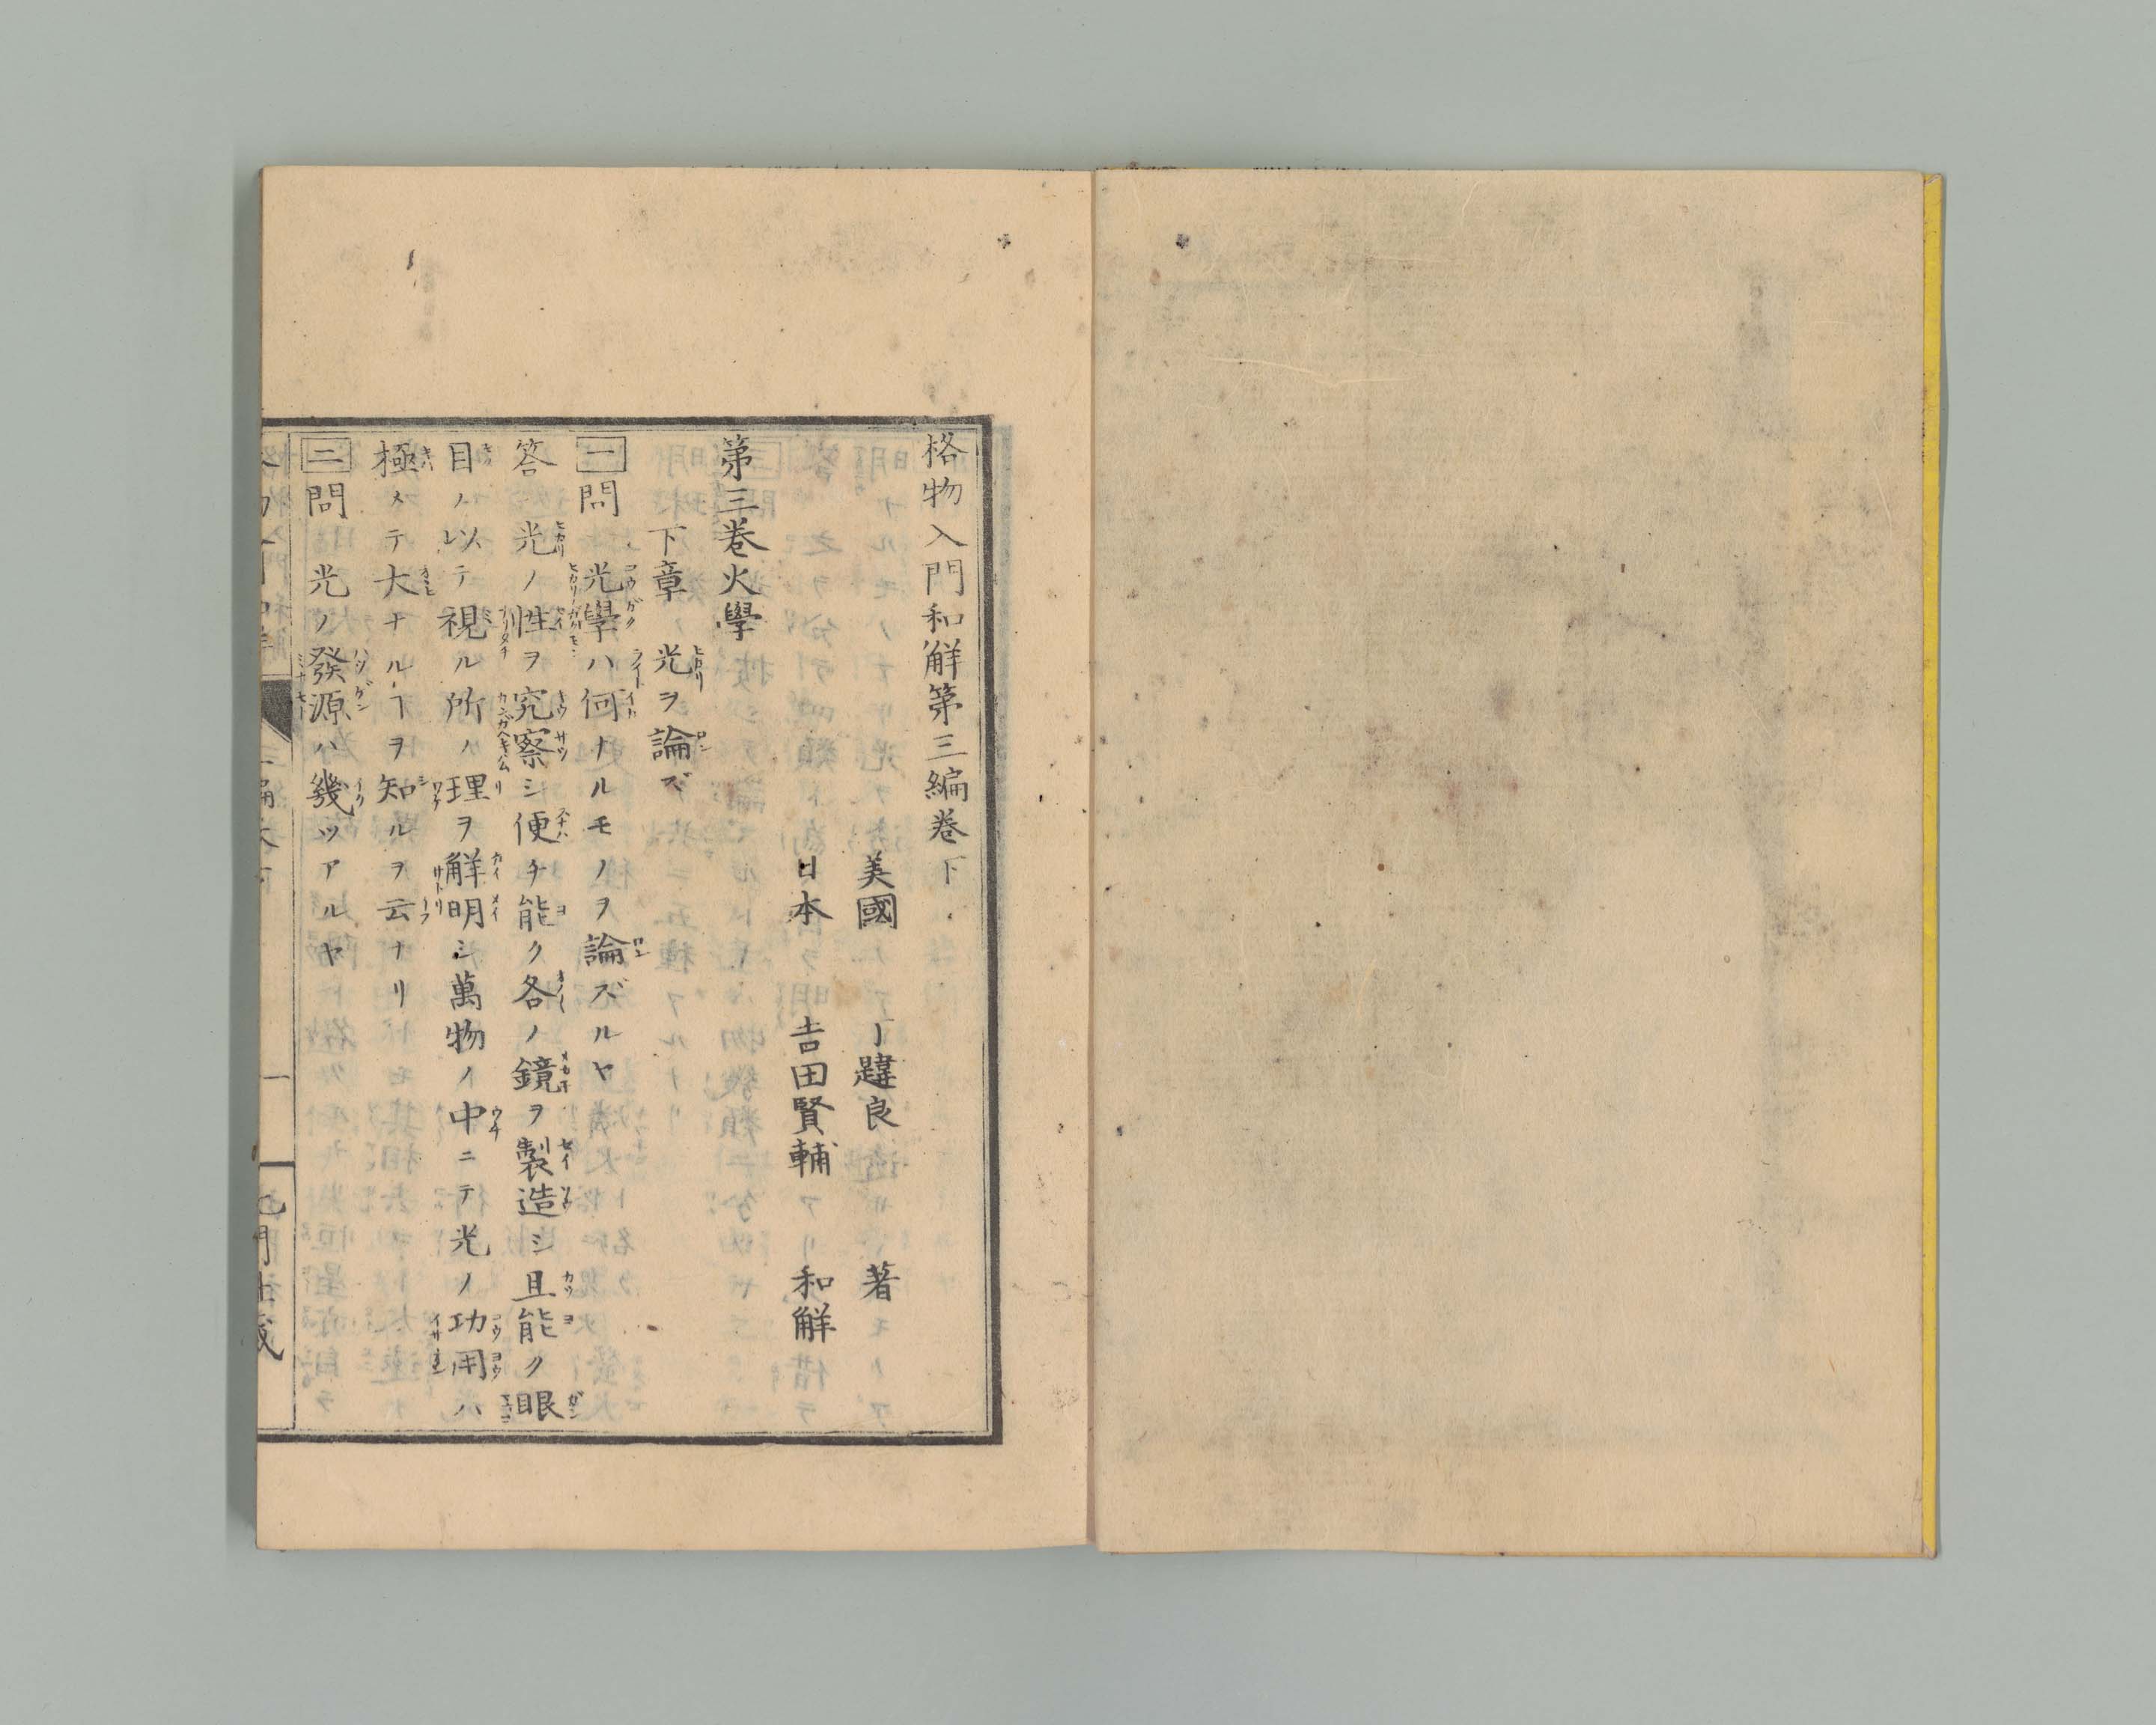 格物入門和解第三編巻下
美國　丁韙良　著
日本　吉田賢輔　和解
第三巻火學
下章　光ヲ論ズ
一問　光學ハ何ナルモノヲ論ズルヤ
答　光ノ性ヲ究察シ便チ能ク各ノ鏡ヲ製造シ且能ク眼
目ノ以テ視ル所ノ理ヲ解明シ萬物ノ中ニテ光ノ功用ハ
極メテ大ナルヿヲ知ルヲ云ナリ
二問　光ノ發源ハ幾ツアルヤ